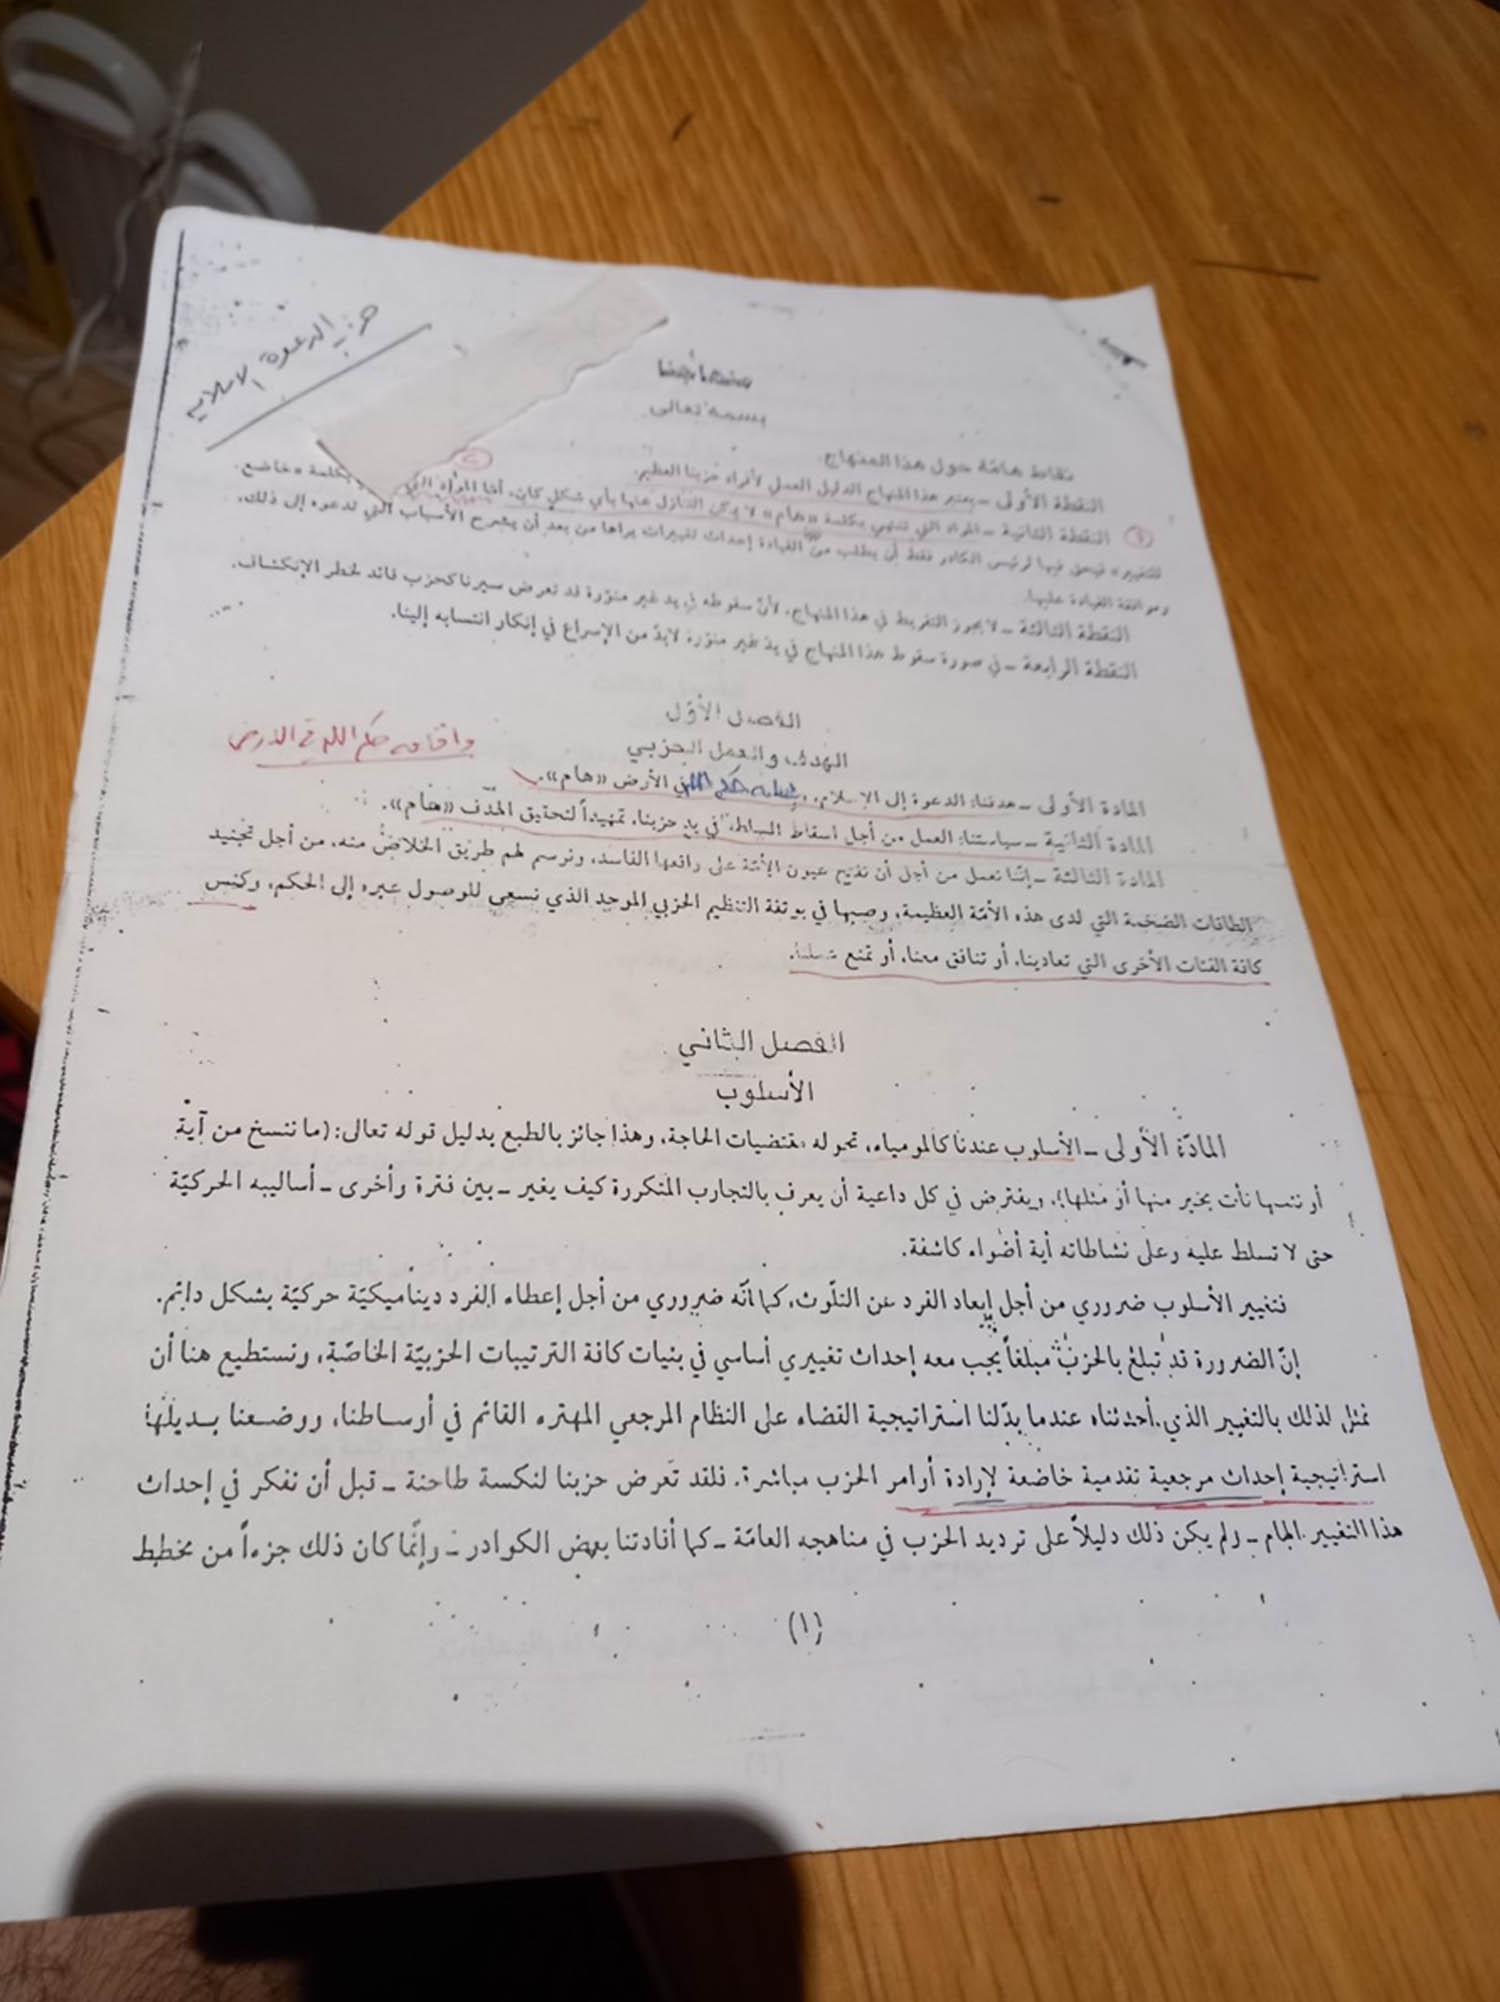 حزب الدعوة الاسلامية
بسمه تعالى
نقاط هامّة حول هذا المنهاج.
النقطة الأولى ـ يعتبر هذا المنهاج الدليل العملي لأفراد حزبنا العظيم.
النقطة الثانية ـ المواد التي تنتهي بكلمة «هام» لا يمكن التنازل عنها بأي شكل كان. أمّا المواد التي بكلمة «خاضع
للتغيير» فيحق فيها لرئيس الكادر فقط أن يطلب من القيادة إحداث تغييرات يراها من بعد أن يشرح الأسباب التي تدعوه إلى ذلك.
وموافقة القيادة عليها.
النقطة الثالثة ـ لا يجوز التفريط في هذا المنهاج، لأنّ سقوطه في يد غير منوّرة قد تعرض سيرنا كحزب قائد لخطر الإنكشاف.
النقطة الرابعة ـ في صورة سقوط هذا المنهاج في يد غير منوّرة لابدّ من الإسراع في إنكار انتسابه إلينا.
الفصل الأوّل
الهدف والعمل الحزبي
واقامة حكم الله في الارض
المادة الأولى ـ هدفنا: الدعوة إلى الإسلام.. حكم الله في الأرض «هام».
المادة الثانية ـ سياستنا: العمل من أجل اسقاط السلطة في يد حزبنا. تمهيداً لتحقيق الهدف «هام».
المادة الثالثة ـ إنّنا نعمل من أجل أن نفتح عيون الأمّة على واقعها الفاسد، ونرسم لهم طريق الخلاص منه. من أجل تجنيد
الطاقات الضخمة التي لدى هذه الأمّة العظيمة، وصبها في بوتقة التنظيم الحزبي الموحد الذي نسعى للوصول عبره إلى الحكم، وكنس
كافة الفئات الأخرى التي تعادينا، أو تنافق معنا، أو تمنع
الفصل الثاني
الأسلوب
المادّة الأولى ـ الأسلوب عندنا كالمومياء، تحوله مقتضيات الحاجة، وهذا جائز بالطبع بدليل قوله تعالى: (ما ننسخ من آية
أو ننسها نأت بخير منها أو مثلها)، ويفترض في كل داعية أن يعرف بالتجارب المتكررة كيف يغير ـ بين فترة وأخرى ـ أساليبه الحركيّة
حتى لا تسلط عليه وعلى نشاطاته أية أضواء كاشفة.
فتغيير الأسلوب ضروري من أجل إبعاد الفرد عن التلّوث، كما أنّه ضروري من أجل إعطاء الفرد ديناميكيّة حركيّة بشكل دائم.
إنّ الضرورة قد تبلغ بالحزب مبلغاً يجب معه إحداث تغييري أساسي في بنيات كافة الترتيبات الحزبيّة الخاصّة، ونستطيع هنا أن
نمثل لذلك بالتغيير الذي أحدثناه عندما بدّلنا استراتيجية القضاء على النظام المرجعي المهترء القائم في أوساطنا، ووضعنا بديلها
استراتيجية إحداث مرجعية تقدمية خاضعة لإرادة أوامر الحزب مباشرة. فلقد تعرض حزبنا لنكسة طاحنة ـ قبل أن نفكر في إحداث
هذا التغيير الهام ـ ولم يكن ذلك دليلاً على ترديد الحزب في مناهجه العامّة ـ كما أفادتنا بعض الكوادر ـ وإنّما كان ذلك جزءاً من مخطط
(١)